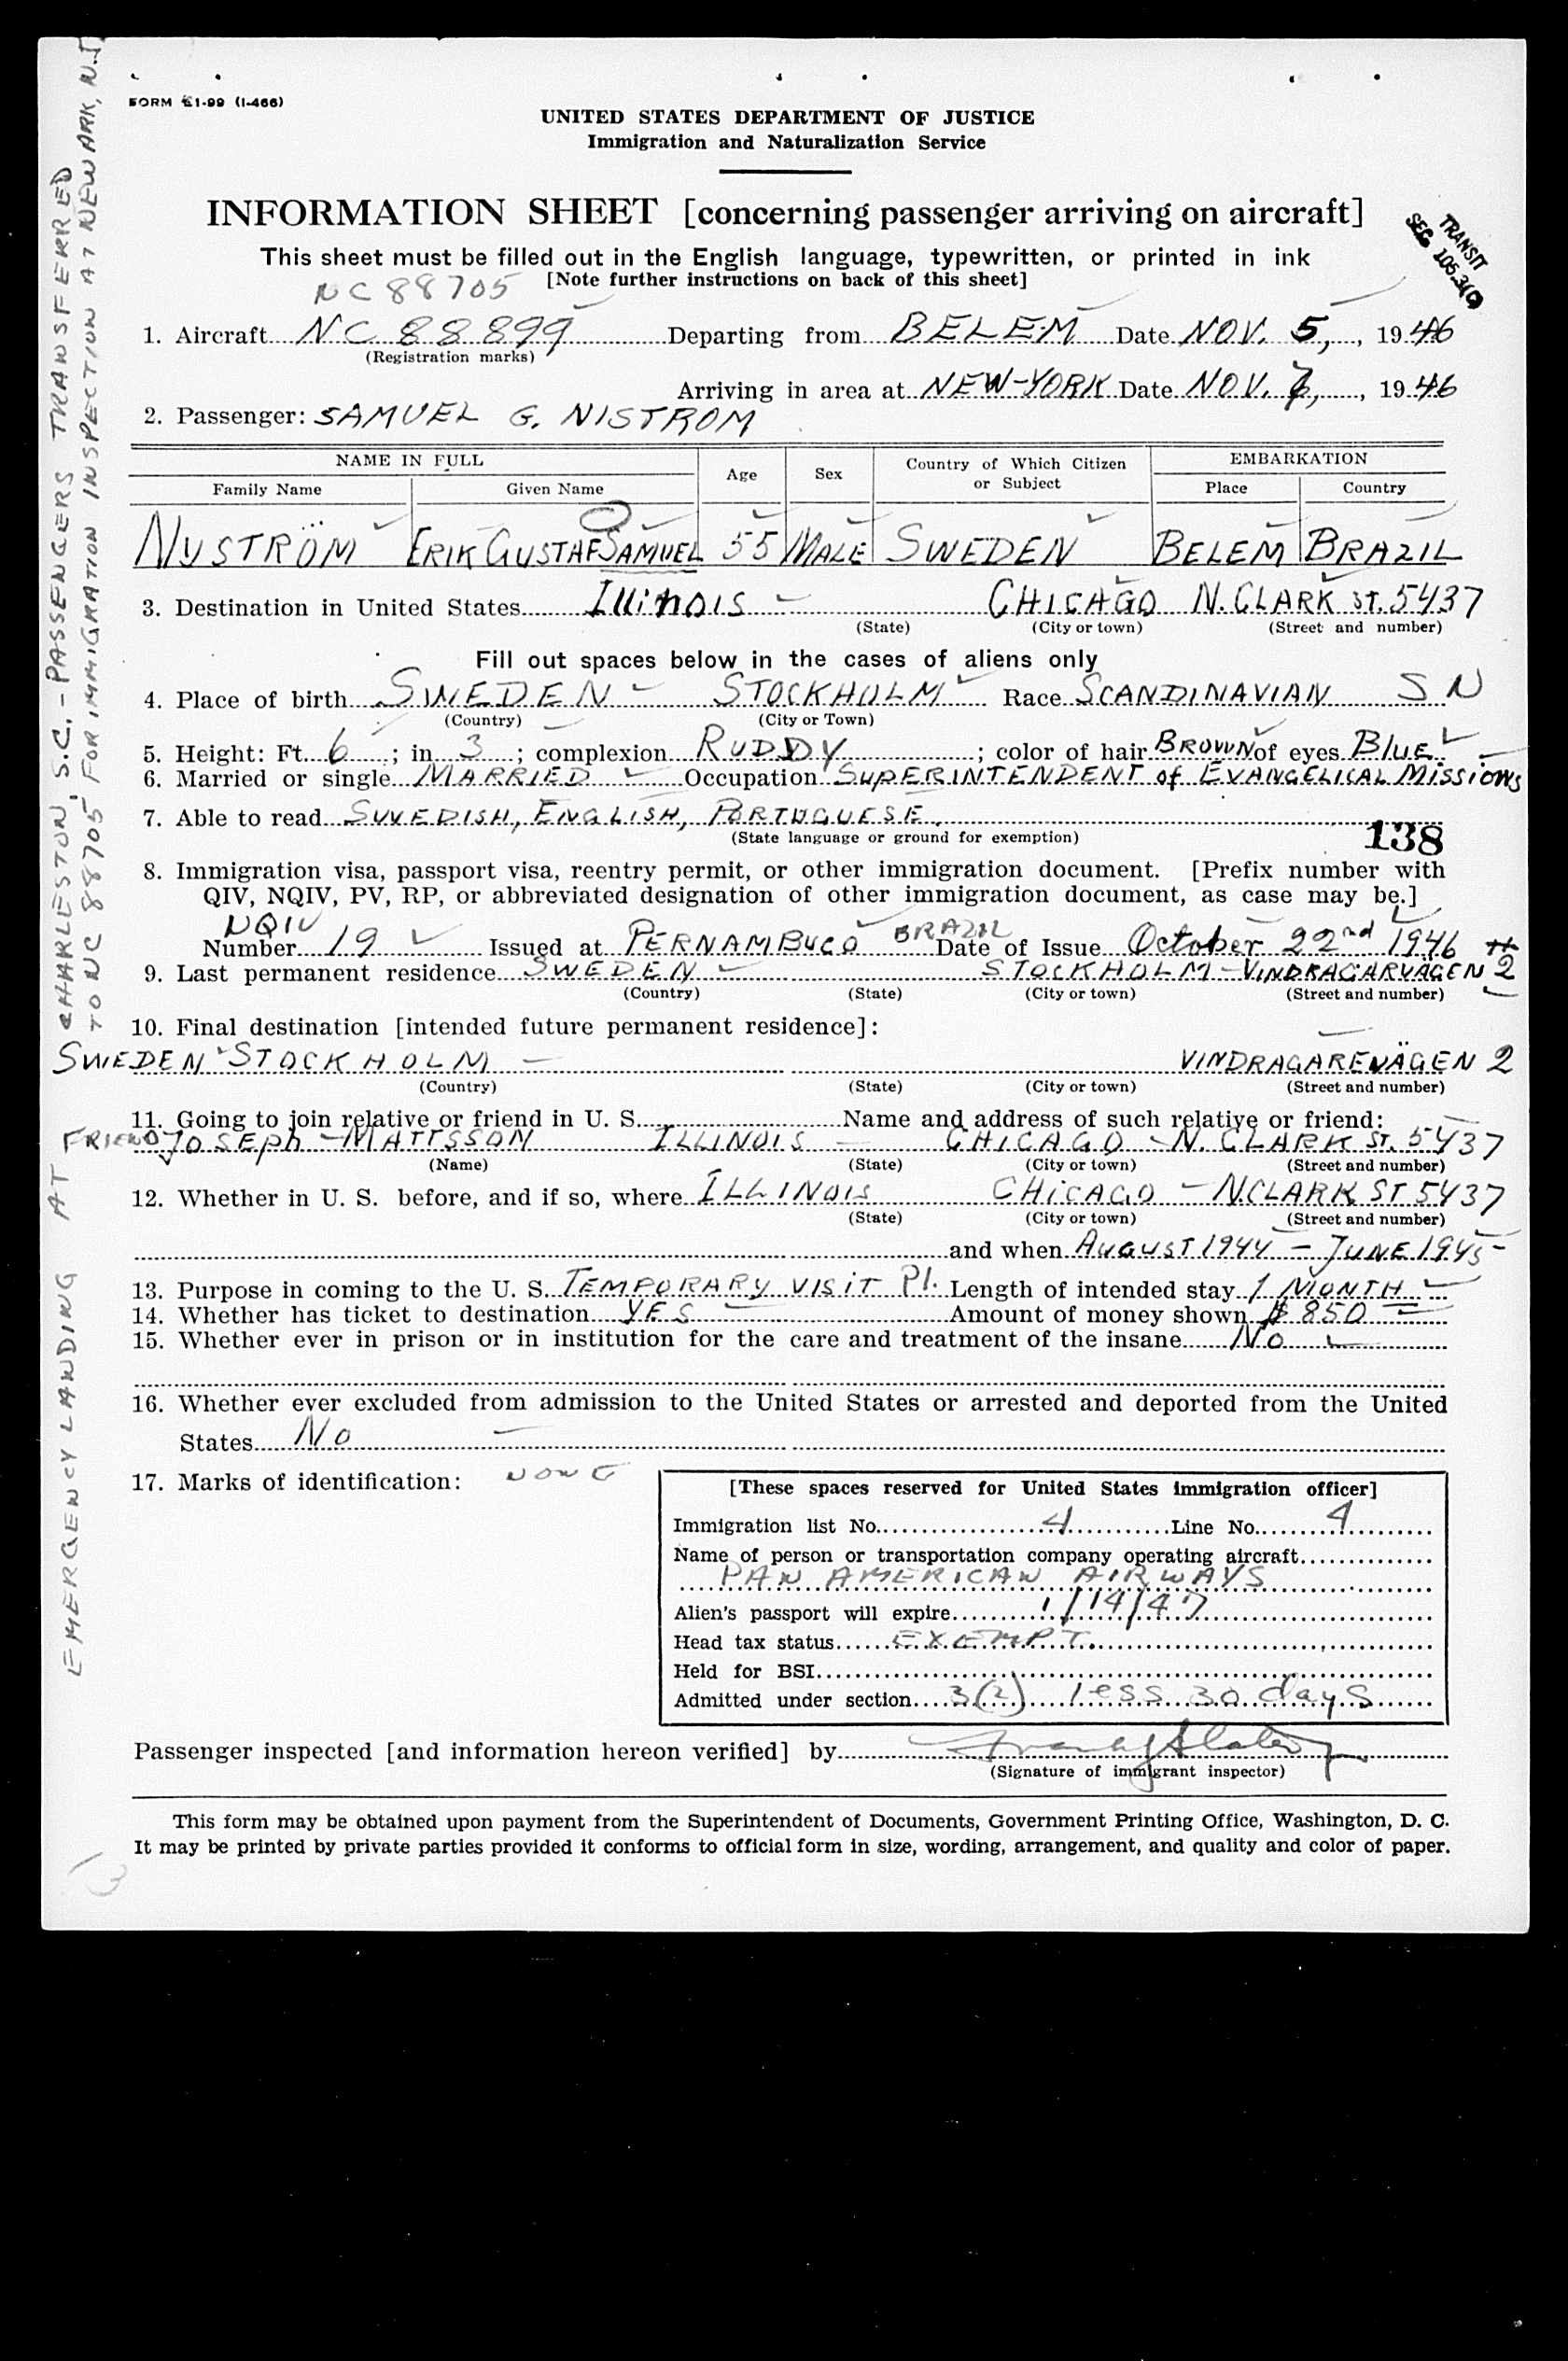 FORM I-99 (I-466)
UNITED STATES DEPARTMENT OF JUSTICE
Immigration and Naturalization Service
INFORMATION SHEET [concerning passenger arriving on aircraft]
TRANSIT
SEC. 105.3(C)
This sheet must be filled out in the English language, typewritten, or printed in ink
[Note further instructions on back of this sheet]
NC 88705
1. Aircraft NC 88899 Departing from BELEM Date NOV. 5, , 1946
(Registration marks)
Arriving in area at NEW-YORK Date NOV. 7, , 1946
2. Passenger: SAMUEL G. NISTROM
NAME IN FULL Age Sex Country of Which Citizen or Subject EMBARKATION
Family Name Given Name Place Country
NYSTRÖM ERIK GUSTAF SAMUEL 55 MALE SWEDEN BELEM BRAZIL
3. Destination in United States Illinois CHICAGO N. CLARK ST. 5437
(State) (City or town) (Street and number)
Fill out spaces below in the cases of aliens only
4. Place of birth SWEDEN STOCKHOLM Race SCANDINAVIAN SN
(Country) (City or Town)
5. Height: Ft. 6 ; in. 3 ; complexion RUDDY ; color of hair BROWN of eyes BLUE
6. Married or single MARRIED Occupation SUPERINTENDENT of EVANGELICAL MISSIONS
7. Able to read SWEDISH, ENGLISH, PORTUGUESE.
(State language or ground for exemption)
138
8. Immigration visa, passport visa, reentry permit, or other immigration document. [Prefix number with
QIV, NQIV, PV, RP, or abbreviated designation of other immigration document, as case may be.]
NQIV
Number 19 Issued at PERNAMBUCO BRAZIL Date of Issue October 22nd 1946
9. Last permanent residence SWEDEN STOCKHOLM - VINDRAGARVAGEN 2
(Country) (State) (City or town) (Street and number)
10. Final destination [intended future permanent residece]:
SWEDEN STOCKHOLM VINDRAGAREVÄGEN 2
(Country) (State) (City or town) (Street and number)
11. Going to join relative or friend in U. S. Name and address of such relative or friend:
FRIEND JOSEPH - MATTSSON ILLINOIS CHICAGO - N. CLARK ST. 5437
(Name) (State) (City or town) (Street and number)
12. Whether in U. S. before, and if so, where ILLINOIS CHICAGO - N. CLARK ST 5437
(State) (City or town) (Street and number)
and when AUGUST 1944 - JUNE 1945
13. Purpose in coming to the U. S. TEMPORARY VISIT Pl. Length of intended stay 1 MONTH
14. Whether has ticket to destination YES Amount of money shown $ 850
15. Whether ever in prison or in institution for the care and treatment of the insane No
16. Whether ever excluded from admission to the United States or arrested and deported from the United
States No
17. Marks of identification: NONE
[These spaces reserved for United States immigration officer]
Immigration list No. 4 Line No. 4
Name of person or transportation company operating aircraft
PAN AMERICAN AIRWAYS
Alien's passport will expire 1/14/47
Head tax status EXEMPT
Held for BSI
Admitted under section 3(2) less 30 days
Passenger inspected [and information hereon verified] by
(Signature of immigrant inspector)
This form may be obtained upon payment from the Superintendent of Documents, Government Printing Office, Washington, D. C.
It may be printed by private parties provided it conforms to official form in size, wording, arrangement, and quality and color of paper.
EMERGENCY LANDING AT CHARLESTON, S.C. - PASSENGERS TRANSFERRED
TO NC 88705 FOR IMMIGRATION INSPECTION AT NEWARK, N.J.